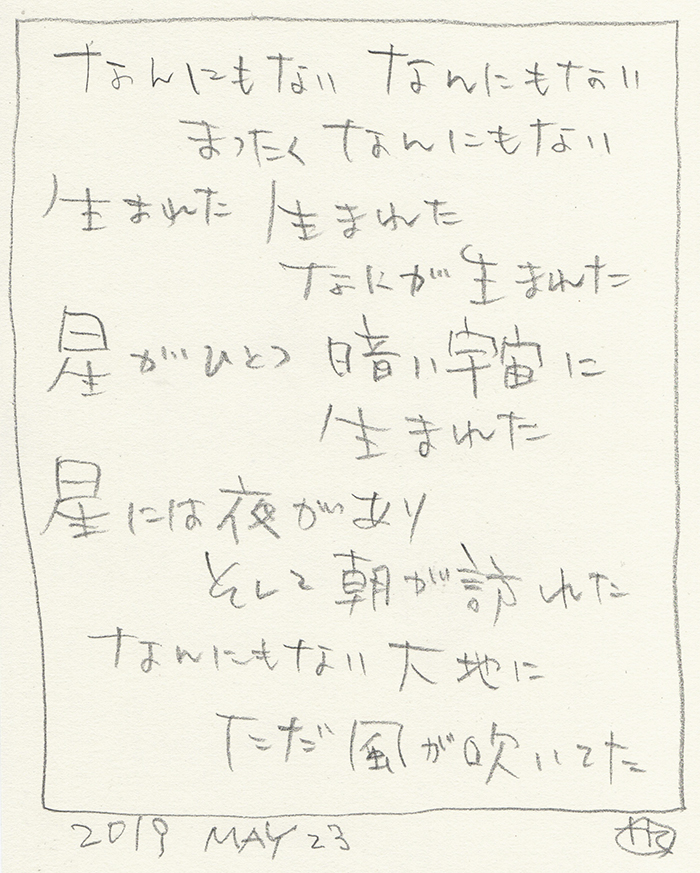 なんにもない なんにもない
まったく なんにもない
生まれた 生まれた
なにが生まれた
星がひとつ 暗い宇宙に
生まれた
星には夜があり
そして朝が訪れた
なんにもない 大地に
ただ風が吹いてた
2019 MAY 23